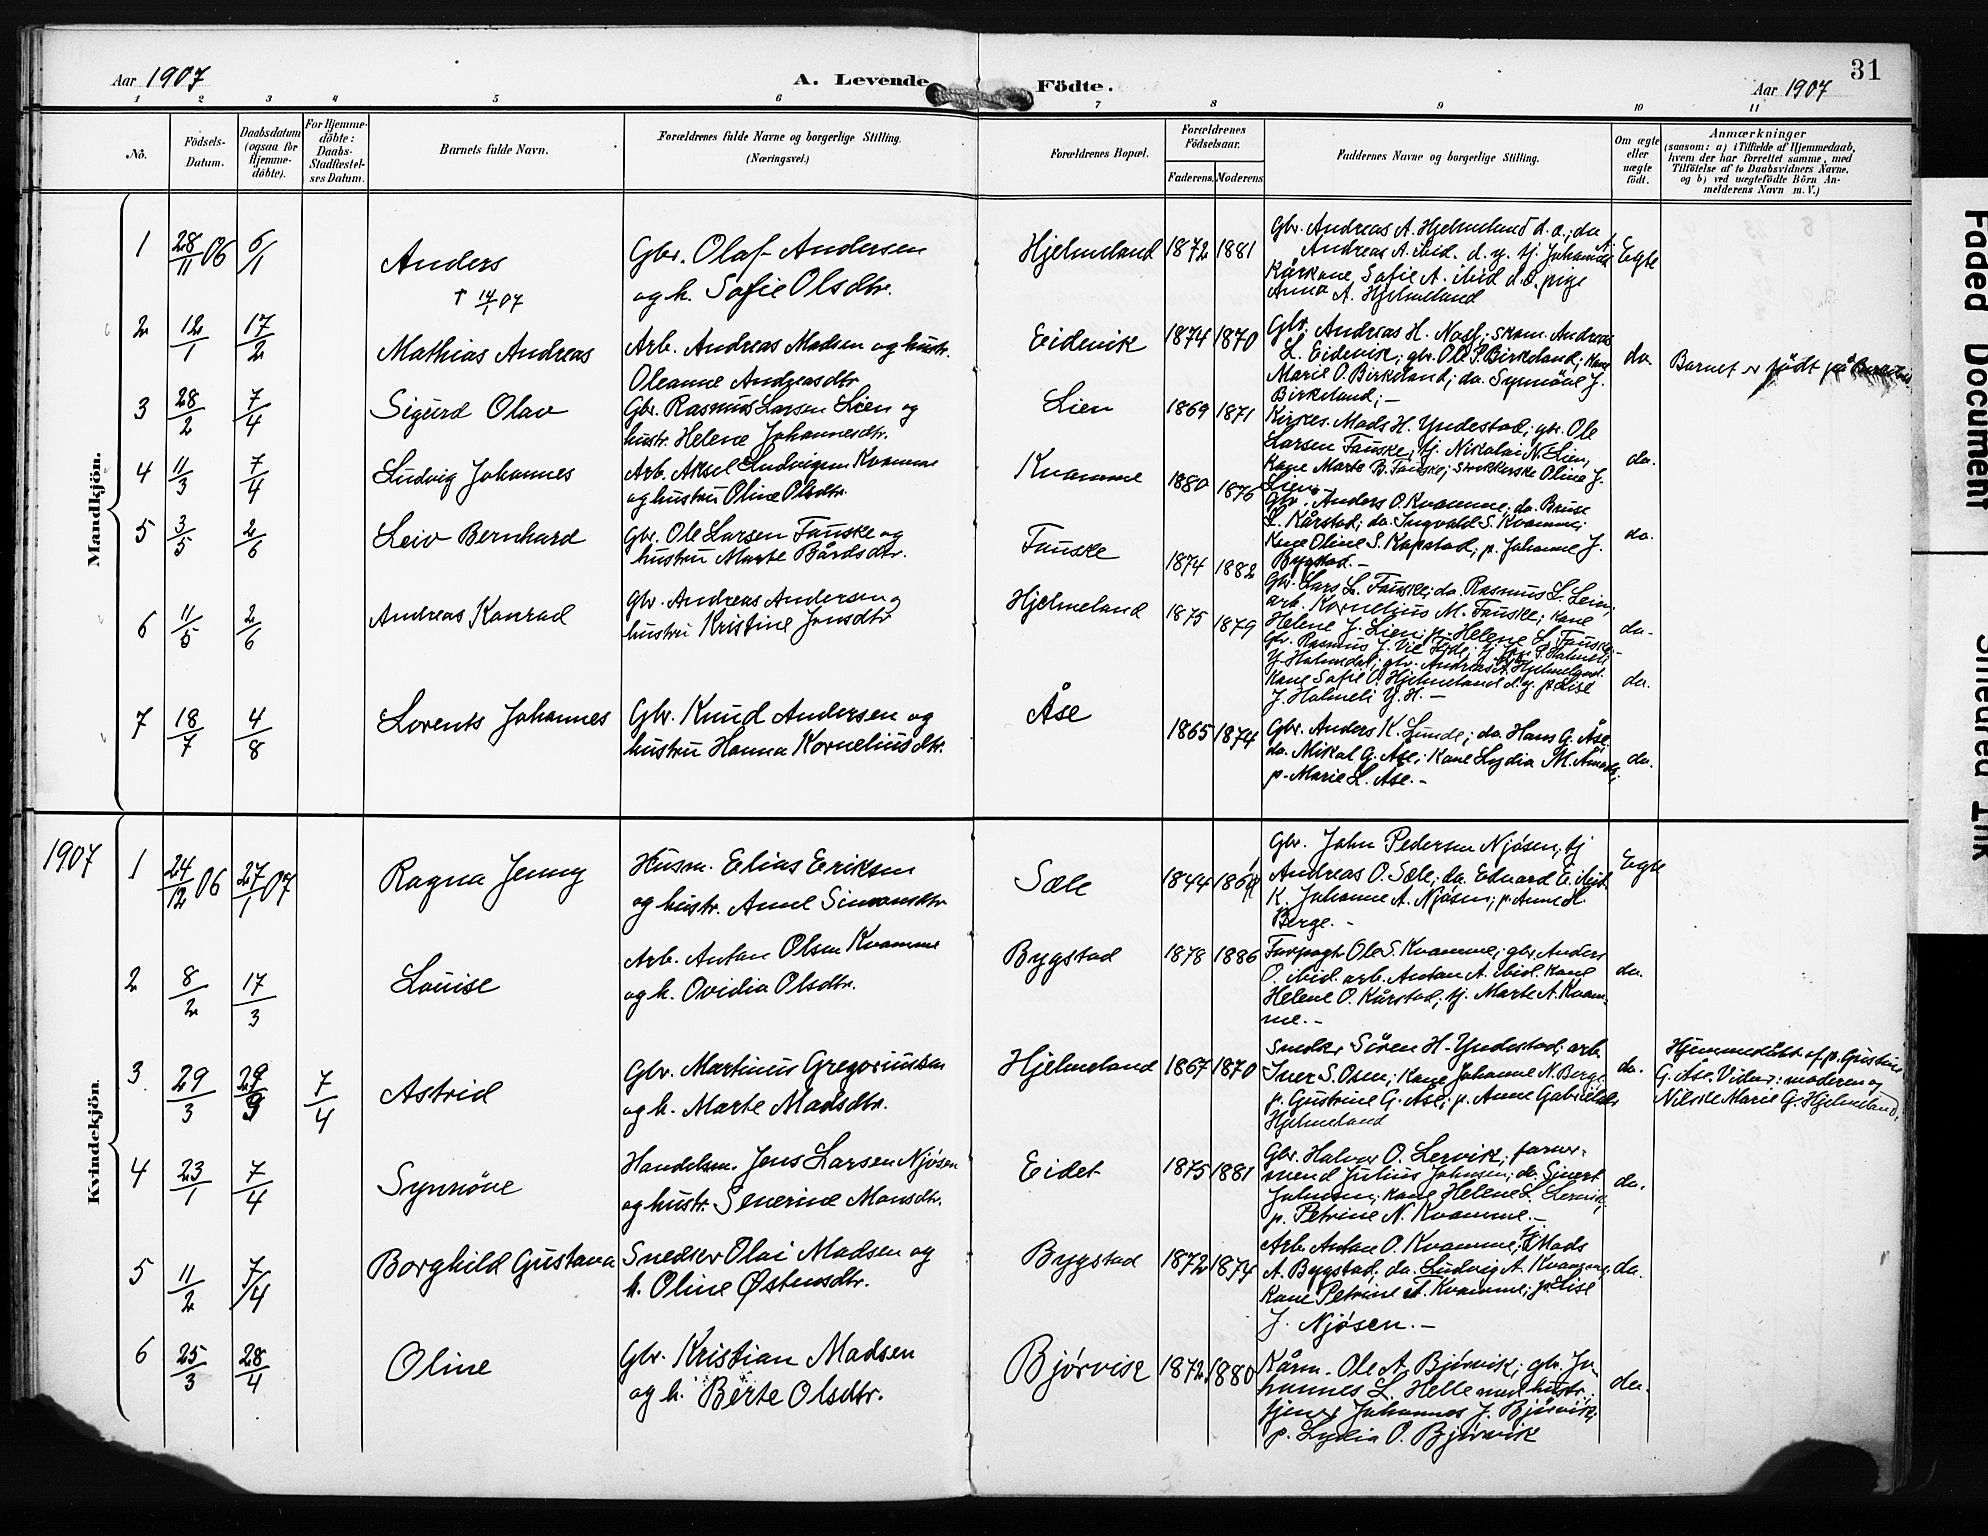 31
Aar 1907
A. Levende Födte.
Aar 1907
1 2 3 4 5 6 7 8 9 10 11
No.
Födsels-Datum.
Daabsdatum (ogsaa for Hjemme-döbte).
For Hjemme-döbte: Daabs-Stadfæstel-ses Datum.
Barnets fulde Navn.
Forældrenes fulde Navne og borgerlige Stilling.
(Næringsvei.)
Forældrenes Bopæl.
Forældrenes Födselsaar.
Faderens. Moderens.
Faddernes Navne og borgerlige Stilling.
Om ægte eller uægte födt.
Anmærkninger
(saasom: a) i Tilfælde af Hjemmedaab,
hvem der har forrettet samme, med
Tilföielse af to Daabsvidners Navne,
og b) ved uægtefödte Börn An-
melderens Navn m. V.)
Mandkjön.
1 28/11 06 6/1 Anders † 14/1 07
Gbr. Olaf Andersen
og h. Sofie Olsdtr.
Hjelmeland 1872 1881
Gbr. Andreas A. Hjelmeland d. æ.; do
Andreas A. ibid. d. y. tj. Johannes A.
Kårkone Sofie A. ibid d.æ. pige
Anna A. Hjelmeland
Egte
2 12/1 17/2 Mathias Andreas
Arb. Andreas Madsen og hustr.
Oleanne Andreasdtr.
Eidevik 1874 1870
Gbr. Andreas H. Nass; skom. Andreas
L. Eidevik; gbr. Ole P. Birkeland; kone
Marie O. Birkeland; do. Synnöve J.
Birkeland; -
do.
Barnet er födt på
3 28/2 7/4 Sigurd Olav
Gbr. Rasmus Larsen Lien og
hustr. Helene Johannesdtr.
Lien 1869 1871
Kirkes. Mads H. Yndestad; gbr. Ole
Larsen Fauske; tj. Nikolai N. Lien,
Kone Marte B. Fauske; strikkerske Oline J.
Lien -
do.
4 11/3 7/4 Ludvig Johannes
Arb. Aksel Ludvigsen Kvamme
og hustru Oline Olsdtr.
Kvamme 1880 1876
Gbr. Anders O. Kvamme; do. Bruse
L. Kårstad; do. Ingvald S. Kvamme;
Kone Oline S. Kapstad; p. Johanne J.
Bygstad. -
do.
5 3/5 2/6 Leiv Bernhard
Gbr. Ole Larsen Fauske og
hustru Marte Bårdsdtr.
Fauske 1874 1882
Gbr. Lars L. Fauske; do. Rasmus L. Lein;
arb. Kornelius M. Fauske; kone
Helene J. Lien; p. Helene L. Fauske. -
do-
6 11/5 2/6 Andreas Konrad
Gbr. Andreas Andersen og
hustru Kristine Jensdtr
Hjelmeland 1875 1879
Gbr. Rasmus J.
Y. Holmedal; gbr. Andreas A. Hjelmeland
Kone Sofie O. Hjelmeland d. y. p. Lise
J. Holmeli Y. H. -
do.
7 18/7 4/8 Lorents Johannes
Gbr. Knud Andersen og
hustru Hanna Korneliusdtr.
Åse 1865 1874
Gbr. Anders K. Lunde; do Hans G. Åse
do. Mikal G. Åse; Kone Lydia M.
p. Marie L. Åse. -
do.
Kvindekjön.
1907
1 24/12 06 27/1 07 Ragna Jenny
Husm. Elias Eriksen
og hustr. Anne Simonsdtr
Sæle 1844 1864
Gbr. John Pedersen Njøsen; tj
Andreas O. Sæle; do. Edvard E. ibid
K. Johanne A. Njøsen; p. Anne H.
Berge. -
Egte
2 8/2 17/3 Louise
Arb. Anton Olsen Kvamme
og h. Ovidia Olsdtr.
Bygstad 1878 1886
Forpagt. Ole S. Kvamme; gbr. Anders
O. ibid. arb. Anton A. ibid. kone
Helene O. Kårstad; tj. Marte A. Kvam-
me. -
do.
3 29/3 29/3 7/4 Astrid
Gbr. Martinus Gregoriussen
og h. Marte Madsdtr.
Hjelmeland 1867 1870
Snedker Sören H. Yndestad; arb.
Iver S. Osen; Kone Johanne N. Berge
p. Gustine G. Åse; p. Anne Gabrielsdtr
Hjelmeland
do.
Hjemmedöbt af p. Gustine
G. Åse. Vidner: moderen og
Nilsile Marie G. Hjelmeland.
4 23/1 7/4 Synnöve
Handelsm. Jens Larsen Njøsen
og hustr. Severine Monsdtr.
Eidet 1875 1881
Gbr. Halvor O. Lervik; farver-
svend Julius Johnsen; do. Sivert
Johnsen; kone Helene L. Lervik;
p. Petrine N. Kvamme. -
do.
5 11/2 7/4 Borghild Gustava
Snedker Olai Madsen og
h. Oline Østensdtr.
Bygstad 1872 1874
Arb. Anton O. Kvamme; tj Mads
A. Bygstad; do. Ludvig A. Kvamme,
Kone Petrine A. Kvamme; p. Lise
J. Njøsen. -
do.
6 25/3 28/4 Oline
Gbr. Kristian Madsen
og h. Berte Olsdtr.
Bjørvik 1872 1880
Kårm. Ole A. Bjørvik; gbr. Jo-
hannes L. Helle med hustr.
tjener Johannes J. Bjørvik;
p. Lydia O. Bjørvik
do.
Faded Document
Smeared Ink